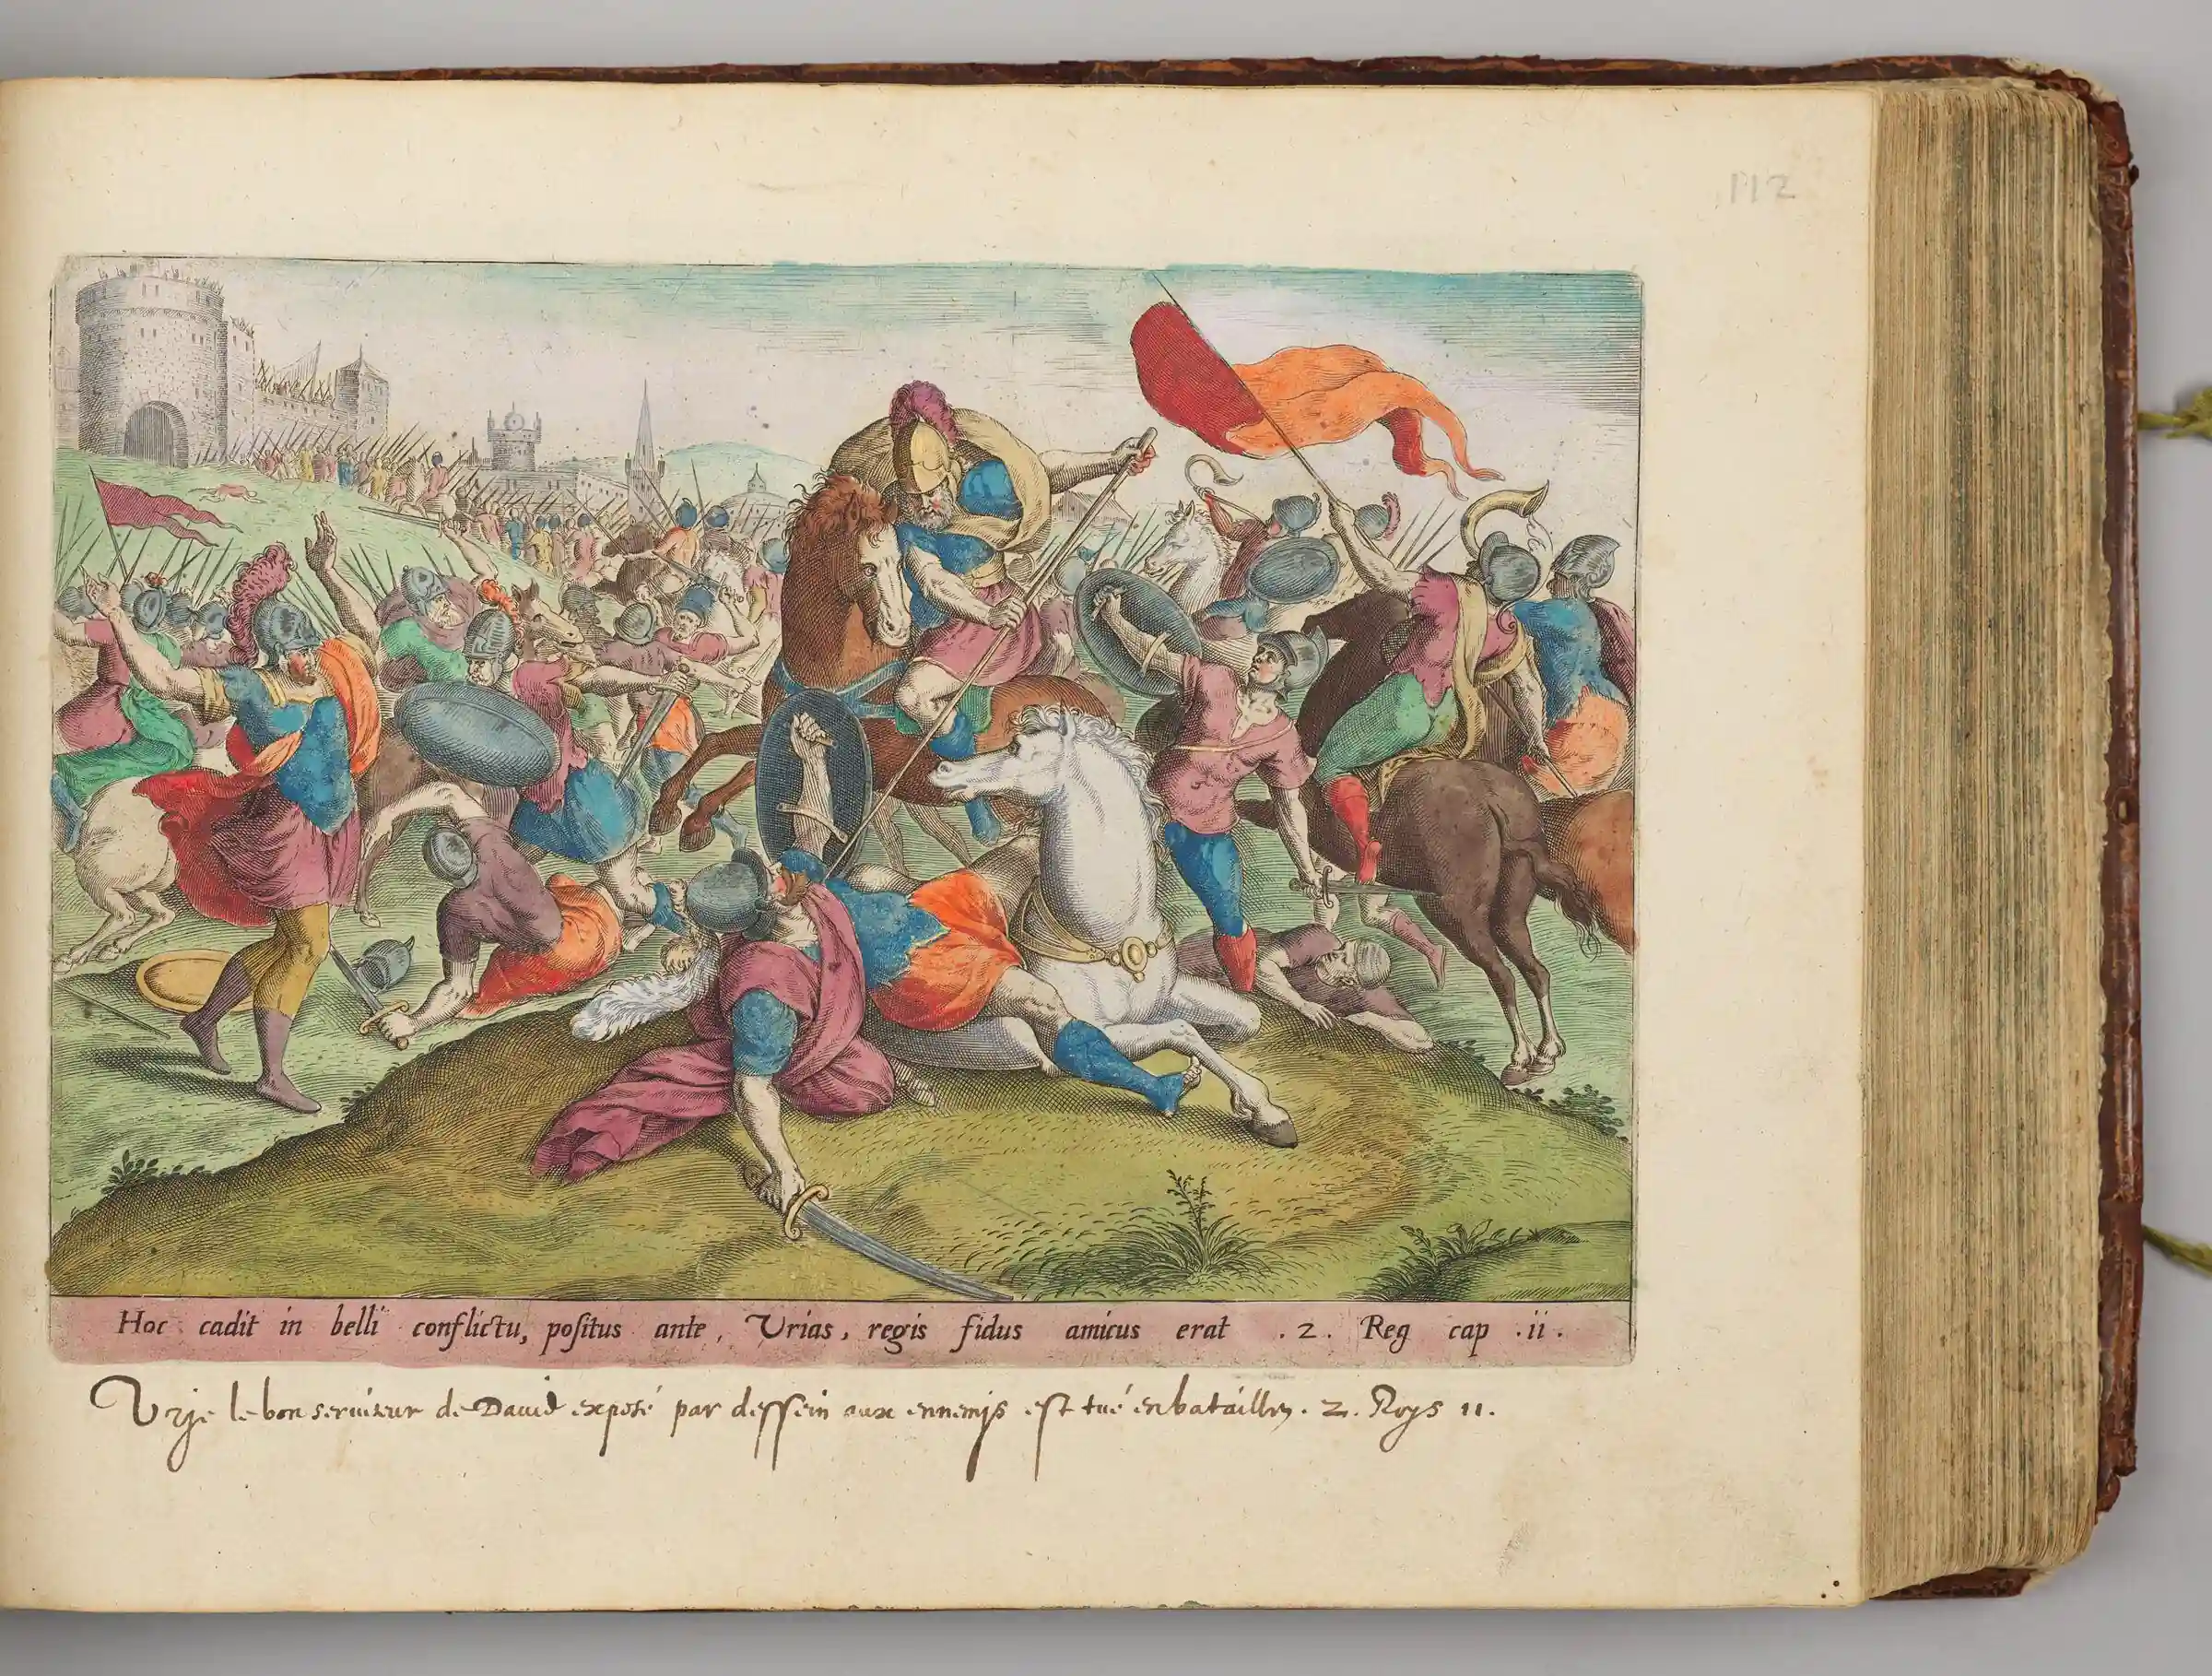 112
Hoc cadit in belli conflictu, poſitus ante, Vrias, regis fidus amicus erat .2. Reg cap .ii.
Vrje le bon seruiteur de Dauid exposé par deſſein aux ennemjs eſt tué en batailles. 2. Roys 11.